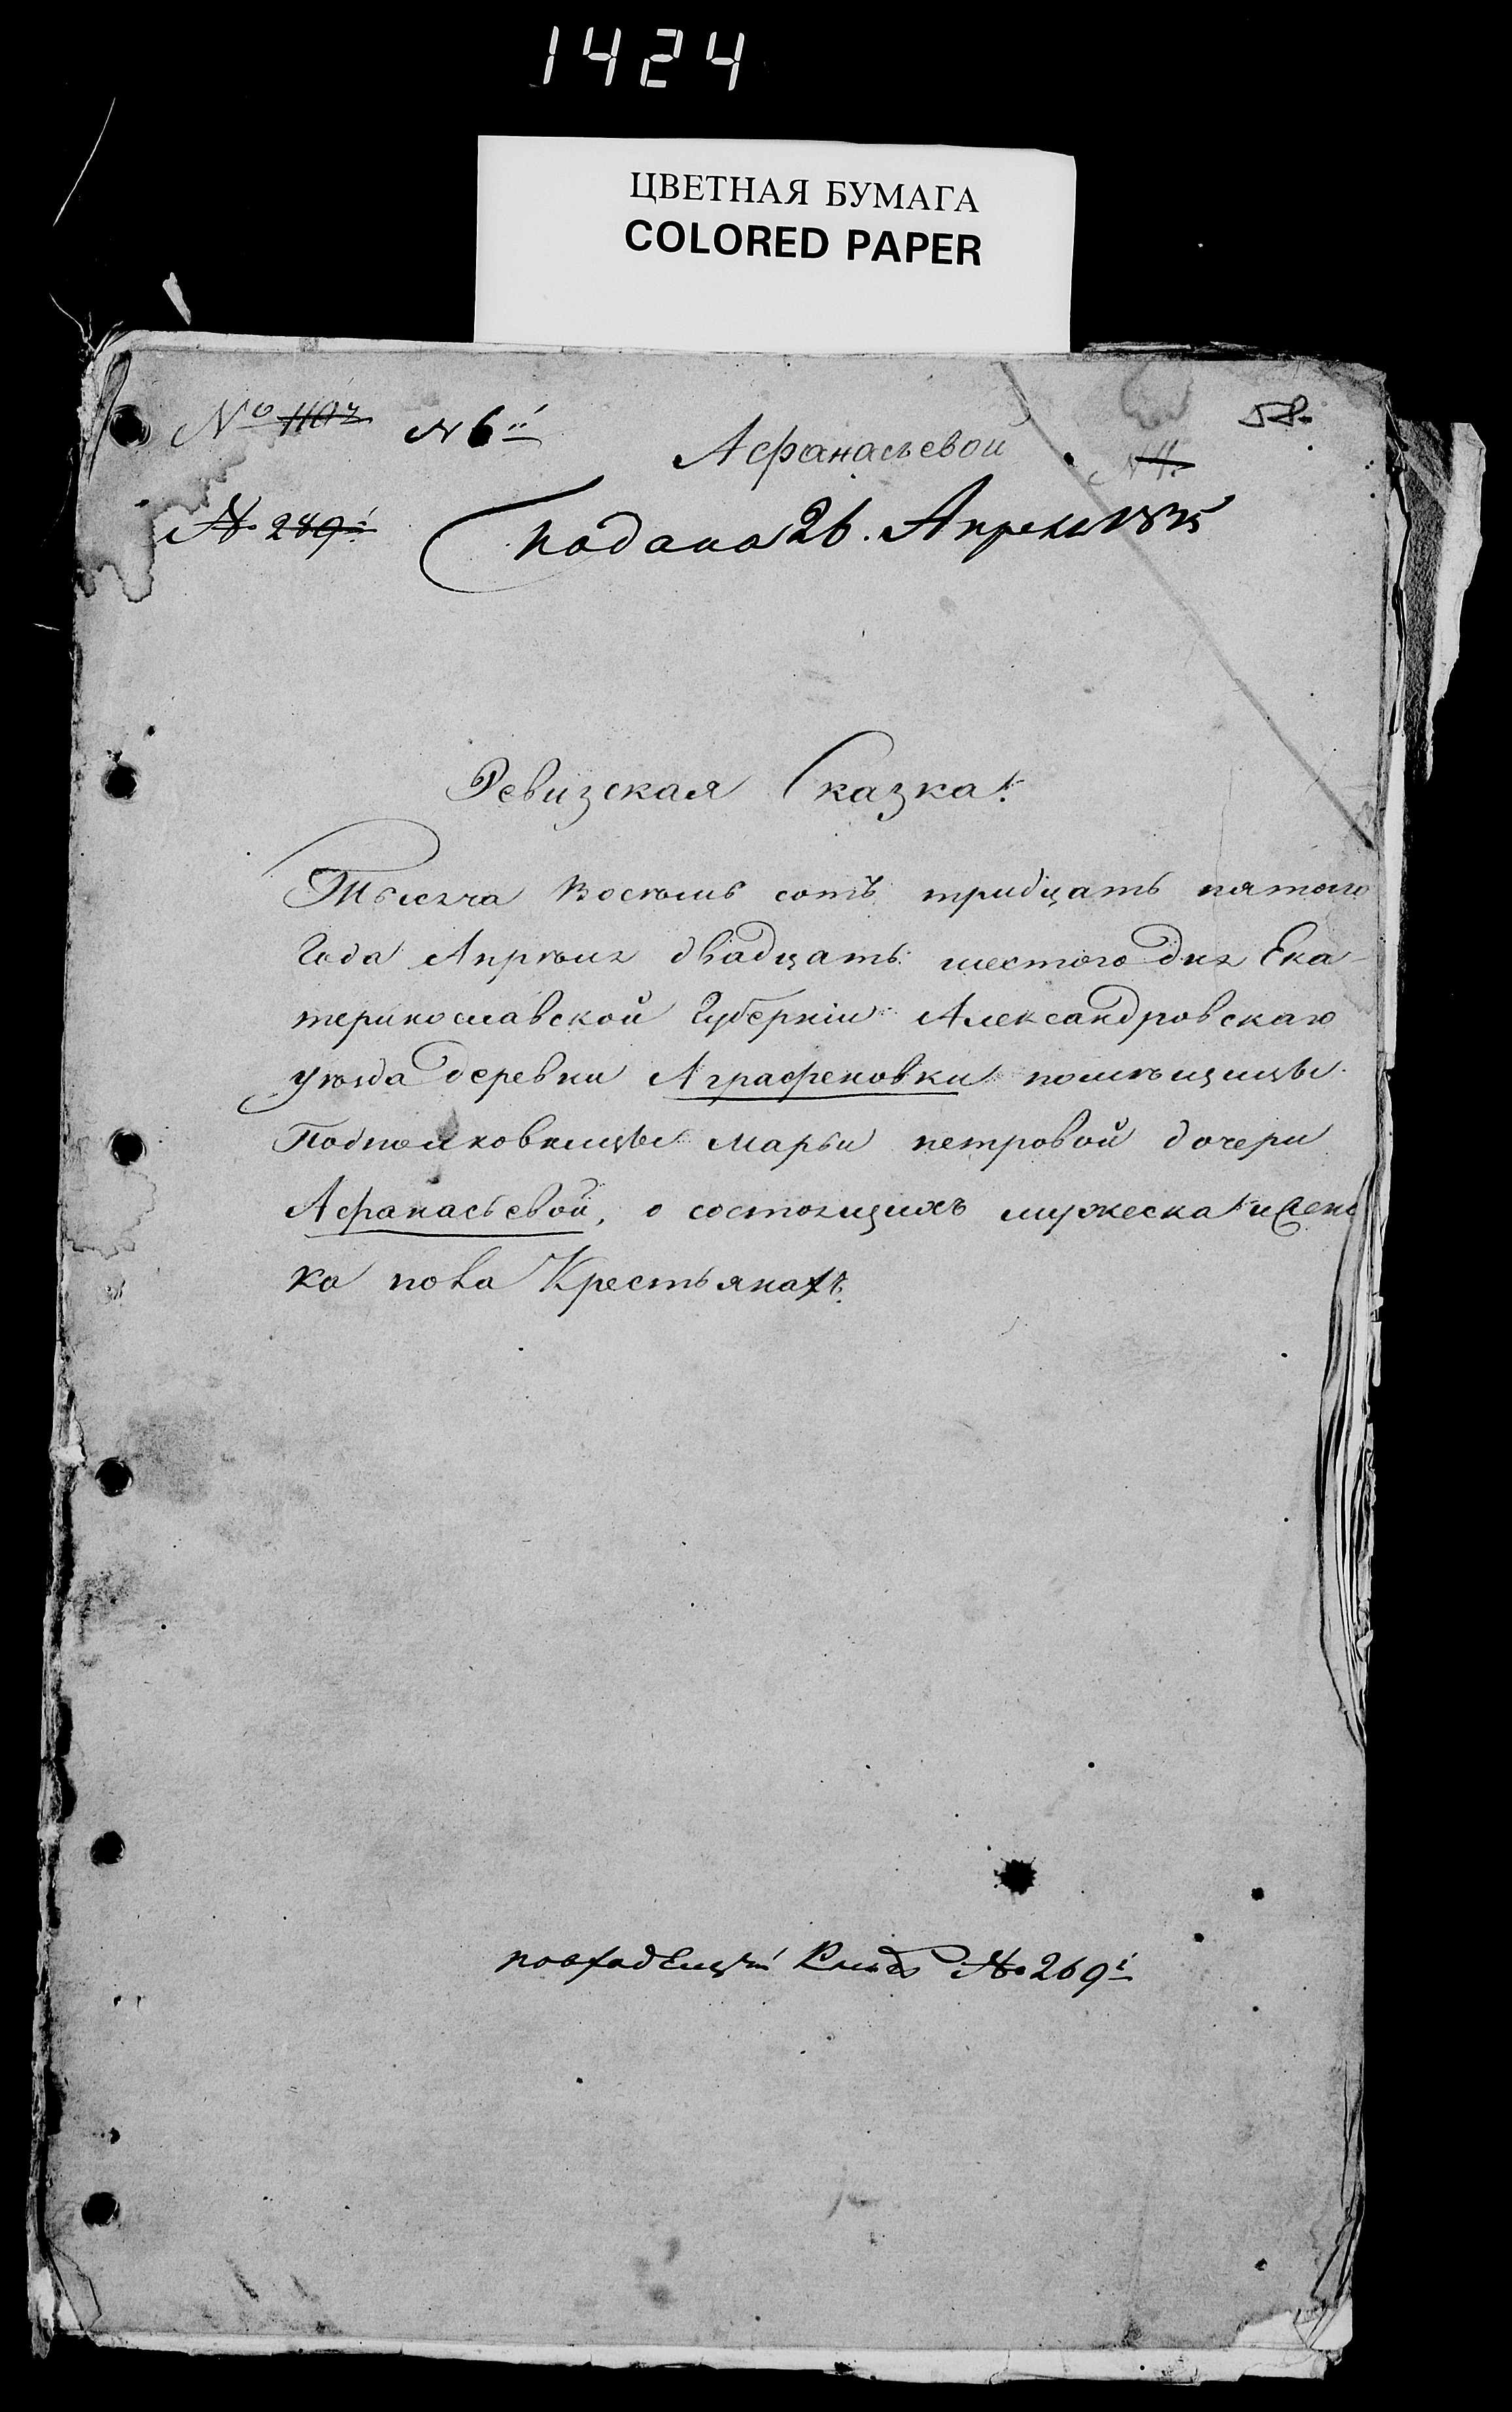 1424
ЦВЕТНАЯ БУМАГА
COLORED PAPER
58.
№ 1107 № 6й
Афанасьевой
№ 289й
подана 26. Апреля 1835
Ревизская Сказка.
Тысяча Восемь сотъ тридцать пятого
Года Апрѣля двадцать шестого дня Ека-
теринославской Губерніи Александровскаго
уѣзда деревни Аграфеновки помѣщицы
Подполковницы Марьи петровой дочери
Афанасьевой, о состоящихъ мужеска и женс
ка пола Крестьянахъ.
повходящей Книге № 269й